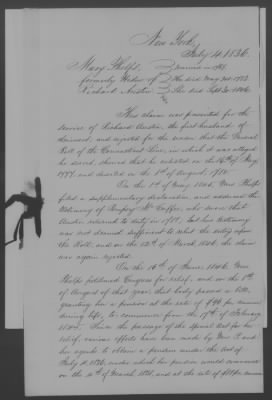 New York,
July 4. 1836.
Mary Phelps,
formerly Widow of
Richard Austin
He died May 1783
She died Sept 30. 1846.
This claim was presented for the
service of Richard Austin, the first husband of
claimant; and rejected for the reason that the General
Roll of the Connecticut Line, in which it was alleged
he served, showed that he enlisted on the 16th of May,
1777, and deserted on the 1st of August, 1780.
On the 1st of May, 1846, Mrs Phelps
filed a supplementary declaration, and adduced the
testimony of
Austin returned to duty in 1781, but his testimony
was not deemed sufficient to
the Roll; and on the 12th of March 1846, the claim
was again rejected.
On the 16th of June, 1846, Mrs
Phelps petitioned Congress for relief, and on the 1st
of August of that year, that body passed a bill,
granting her a pension at the rate of $96 per annum
during life, to commence from the 17th of February
Since the passage of the special act for her
relief, various efforts have been made by Mrs P. and
her agents to obtain a pension under the Act of
July 4, 1836, under which her pension would commence
on the 4th of March 1831, and at the rate of per annum